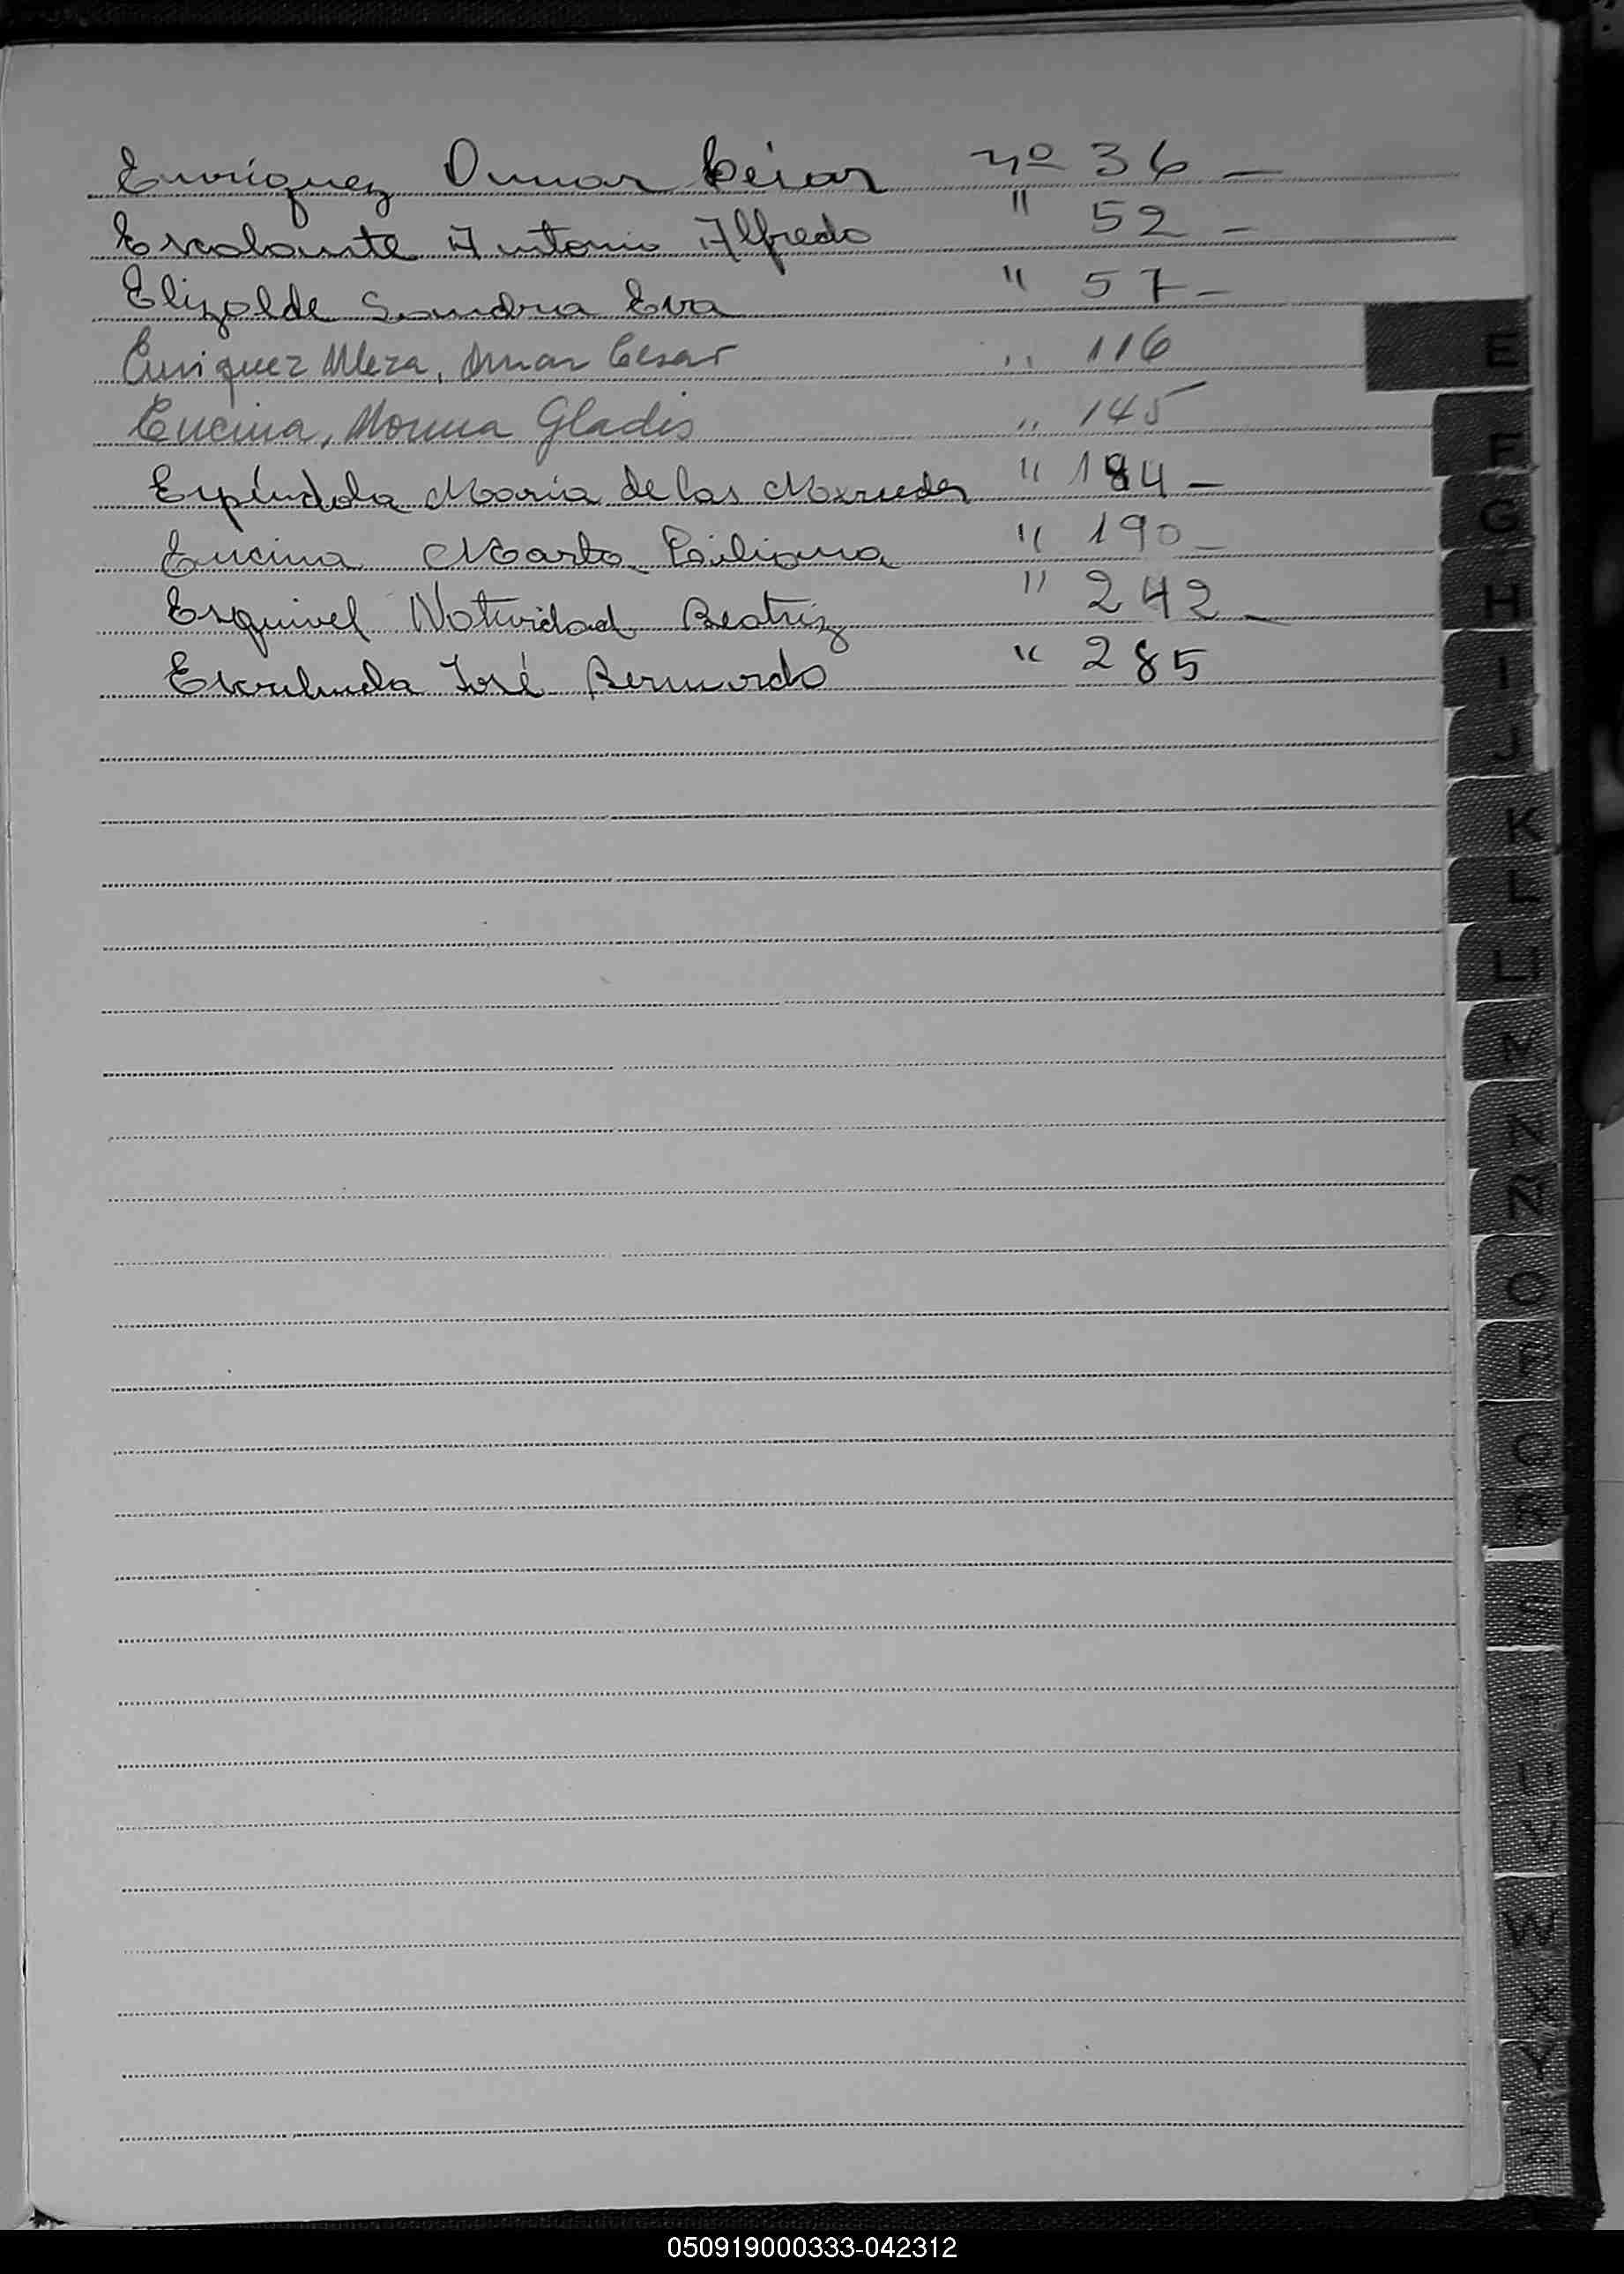 Enriquez Omar César nº 36 –
Escalante Antonio Alfredo " 52 –
Elizalde Sandra Eva " 57 –
Enriquez Meza, Omar Cesar " 116
E
Encina, Norma Gladis " 145
F
Espíndola María de las Mercedes " 184 –
G
Encina Marta Liliana " 190 –
H
Esquivel Natividad Beatriz " 242 –
José Bernardo " 285
I
J
K
L
LL
M
N
Ñ
O
P
Q
R
S
T
U
V
W
X
Y
Z
050919000333-042312